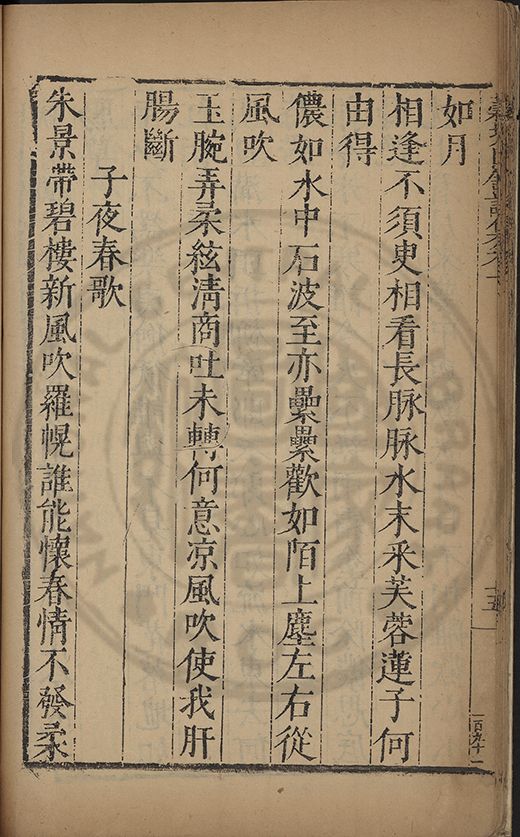 如月
相逢不須臾相看長脉脉水末采芙蓉蓮子何
由得
儂如水中石波至亦纍纍歡如陌上塵左右從
風吹
玉腕弄柔絃淸商吐未轉何意凉風吹使我肝
腸斷
子夜春歌
朱景帶碧樓新風吹羅幌誰能懷春情不發柔
一百九十一